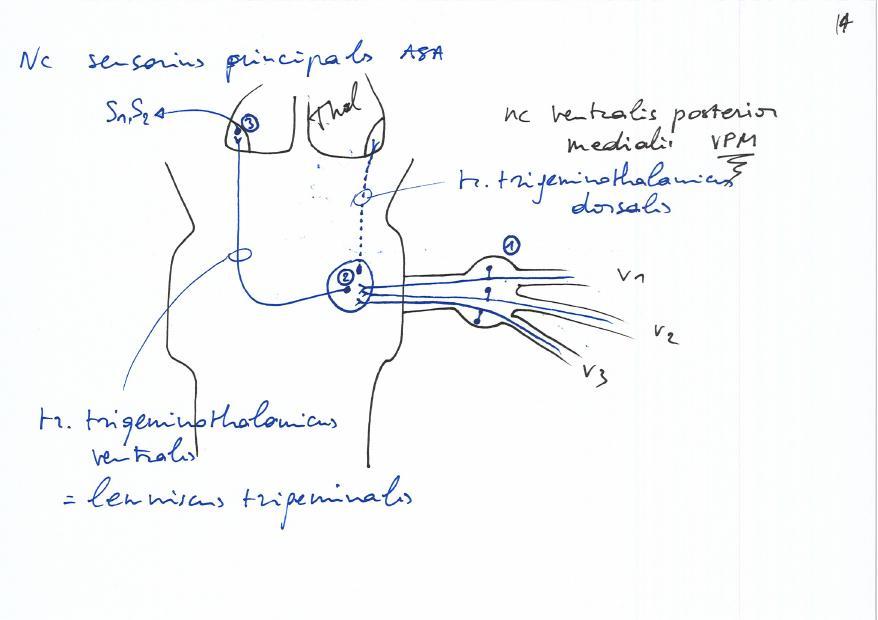 14
Nc sensorius principalis ASA
S1, S2
3
Thal
nc ventralis posterior
medialis VPM
tr. trigeminothalamicus
dorsalis
1
2
V1
V2
V3
tr. trigeminothalamicus
ventralis
= lemniscus trigeminalis